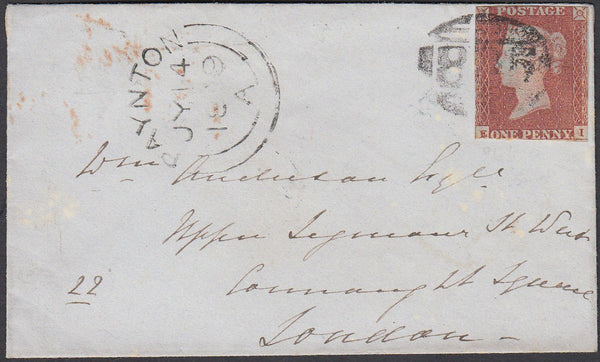 POSTAGE
ONE PENNY
E I
PAYNTON
JY 14
A
Wm Anderson Esqre
Upper Seymour St West
22
Connaught Square
London